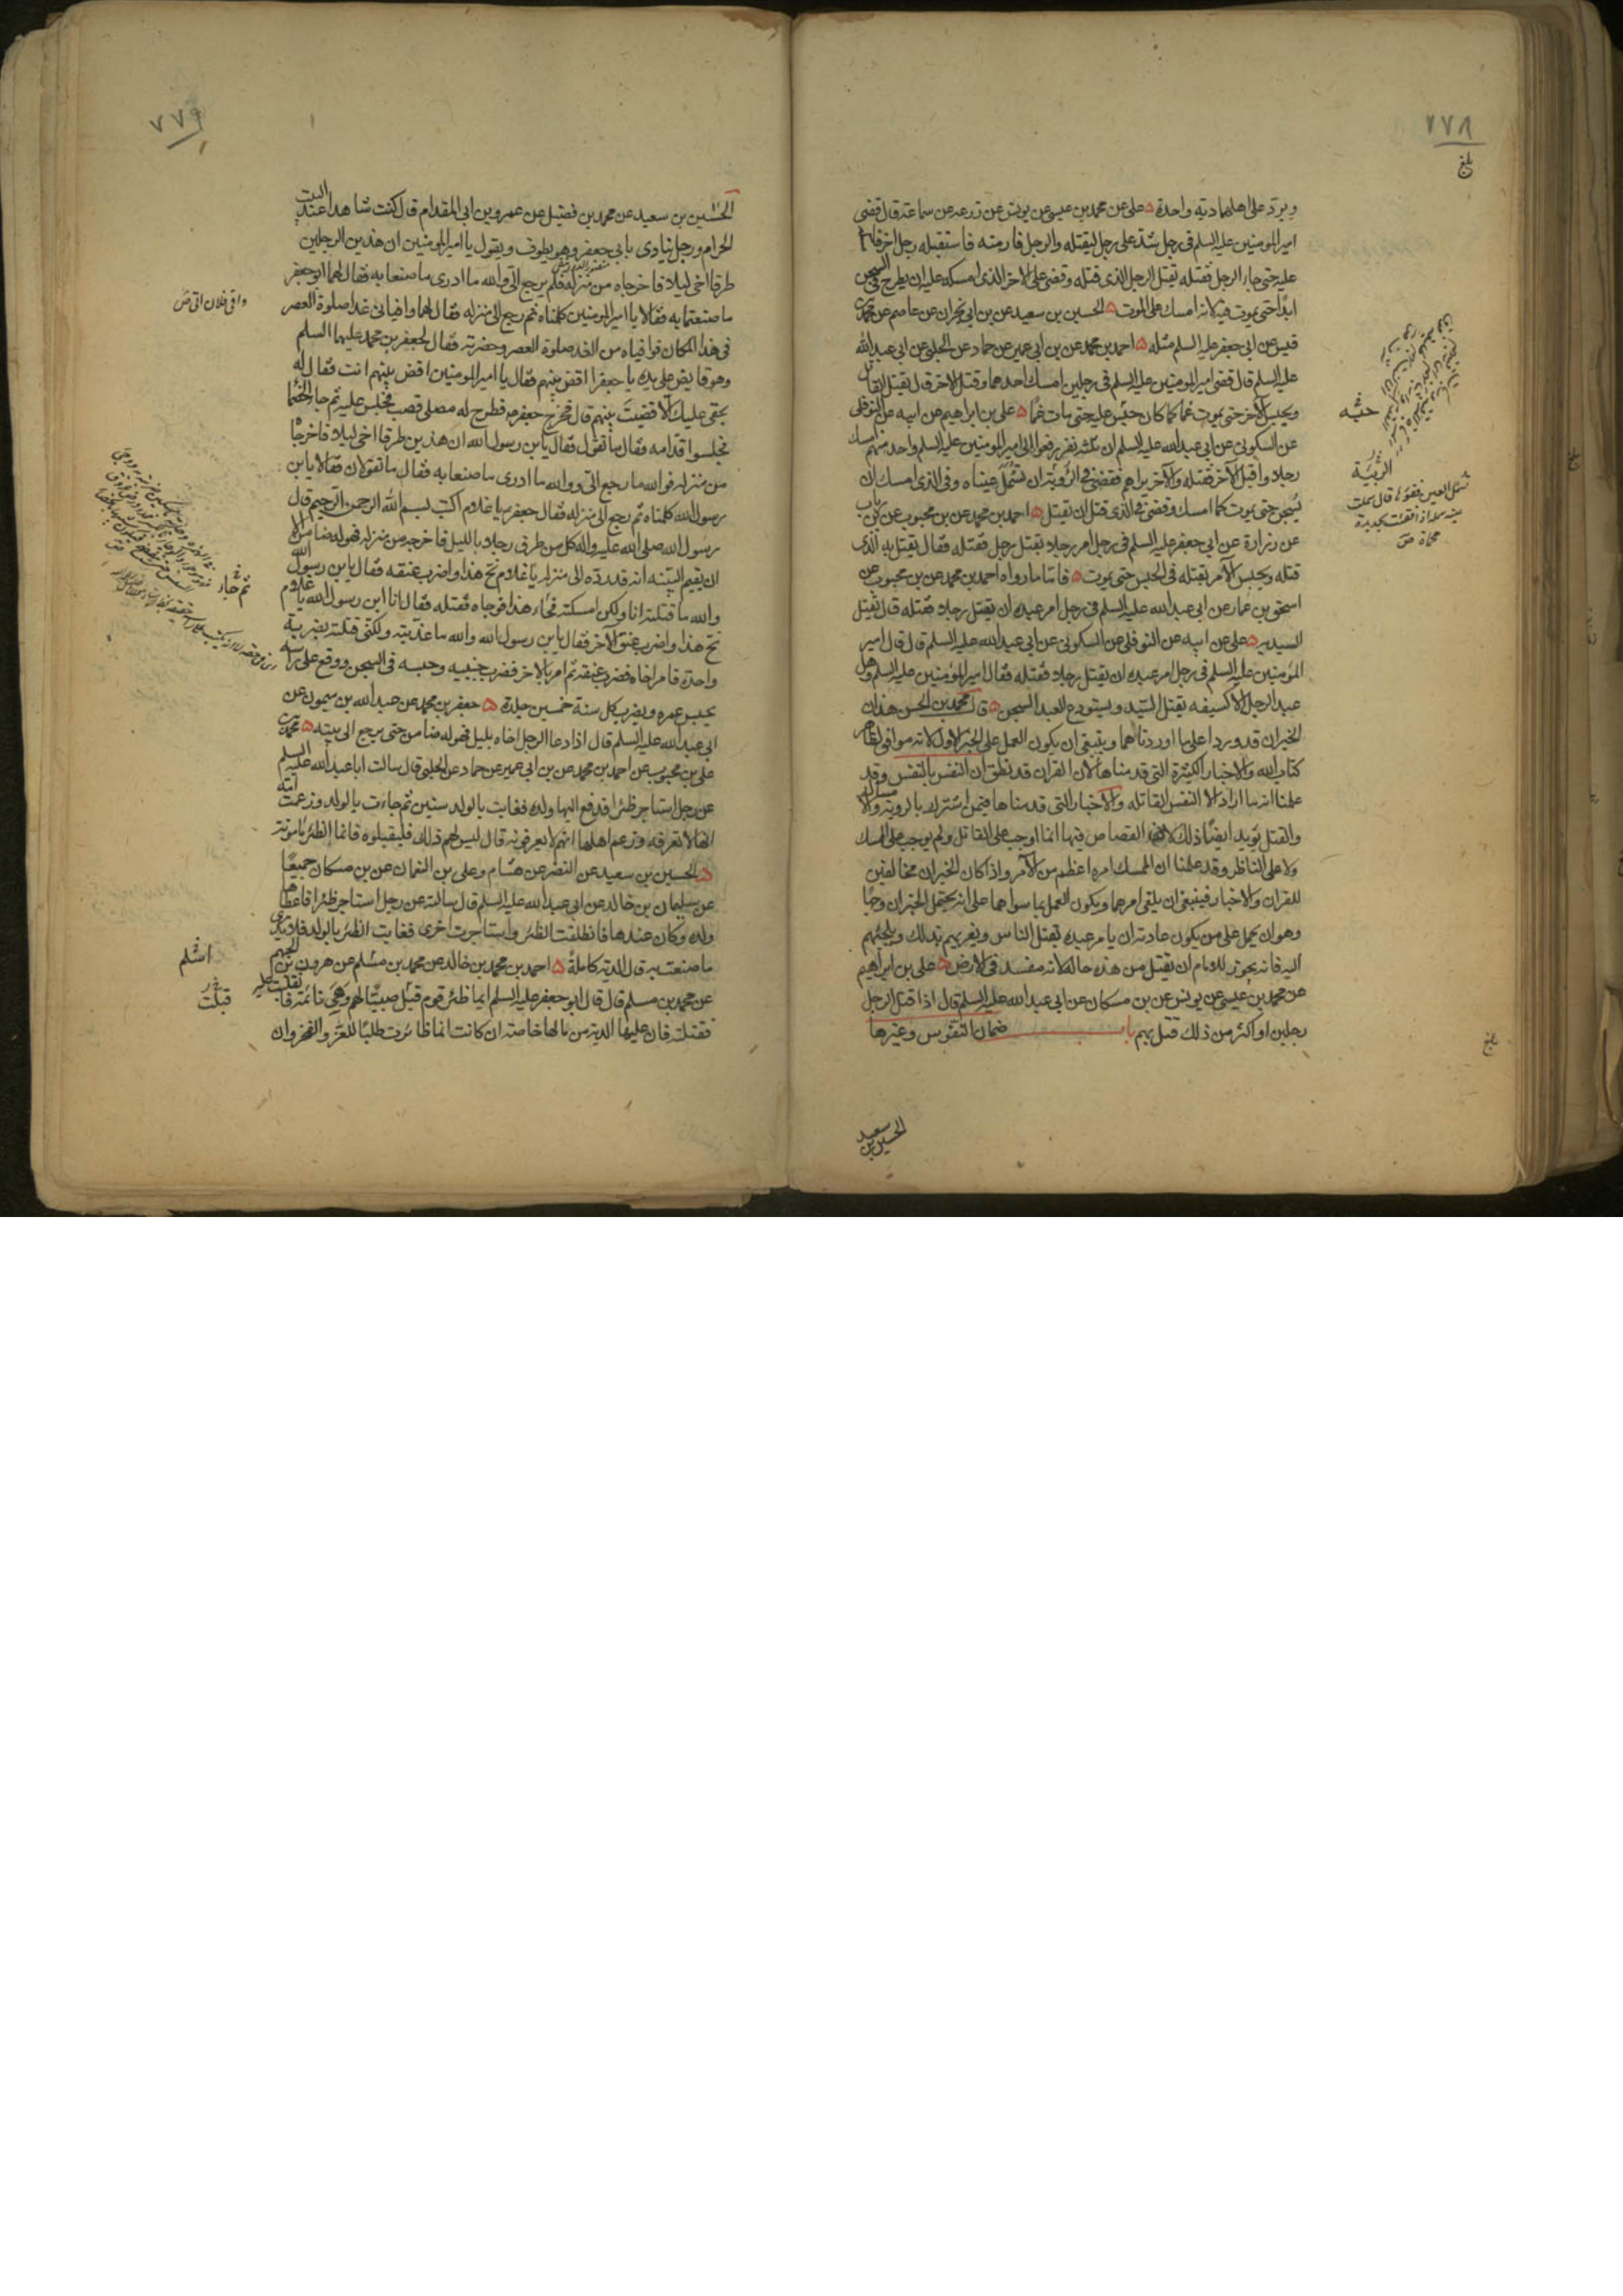 ٢٧٨
بلغ
ويرد على اهلهما دية واحدة ه على عن محمد بن عيسى عن يونس عن زرعه عن سماعة قال قضى
امير المومنين عليه السلم فى رجل شد على رجل ليقتله والرجل فار منه فاستقبله رجل اخر
عليه حتى جاء الرجل فقتله فقتل الرجل الذى قتله وقضى على الاخر الذى امسكه عليه ان يطرح فى السجن
ابدا حتى يموت فيه لانه امسكه على الموت ه الحسين بن سعيد عن بن ابى نجران عن عاصم عن محمد بن
قيس عن ابى جعفر عليه السلم مثله ه احمد بن محمد عن بن ابى عمير عن حماد عن الحلبى عن ابى عبد الله
عليه السلم قال قضى امير المومنين عليه السلم فى رجلين امسك احدهما وقتل الاخر قال يقتل القاتل
ويحبس الآخر حتى يموت غما كما كان حبس عليه حتى مات غما ه على بن ابراهيم عن ابيه عن النوفلى
عن السكونى عن ابى عبد الله عليه السلم ان ثلثه نفر رفعوا الى امير المومنين عليه السلم واحد منهم امسك
رجلا واقبل الآخر فقتله والآخر يراهم فقضى فى الرؤية ان تسمل عيناه وفى الذى امسك ان
يسجن حتى يموت كما امسك وقضى فى الذى قتل ان يقتل ه احمد بن محمد عن بن محبوب عن بن رئاب
عن زرارة عن ابى جعفر عليه السلم فى رجل امر رجلا بقتل رجل فقتله فقال يقتل به الذى
قتله ويحبس الآمر بقتله فى الحبس حتى يموت ه فاما ما رواه احمد بن محمد عن بن محبوب عن
اسحق بن عمار عن ابى عبد الله عليه السلم فى رجل امر عبده ان يقتل رجلا فقتله قال يقتل
السيد به ه على عن ابيه عن النوفلى عن السكونى عن ابى عبد الله عليه السلم قال قال امير
المؤمنين عليه السلم فى رجل امر عبده ان يقتل رجلا فقتله فقال امير المؤمنين عليه السلم وهل
عبد الرجل الا كسيفه يقتل السيد ويستودع العبد السجن ه قال محمد بن الحسن هذان
الخبران قد وردا على ما اوردناهما وينبغى ان يكون العمل على الخبر الاول لانه موافق لظاهر
كتاب الله والاخبار الكثيرة التى قدمناها لان القران قد نطق ان النفس بالنفس وقد
علمنا انه ما اراد الا النفس القاتلة والاخبار التى قدمناها فيمن اشترك بالروية والامساك
والقتل يويد ايضا ذلك لان القصاص فيها انما اوجب على القاتل ولم يوجب على الممسك
ولا على الناظر وقد علمنا ان الممسك امره اعظم من الآمر واذا كان الخبران مخالفين
للقران والاخبار فينبغى ان يلقى امرهما ويكون العمل بما سواهما على انه يحتمل الخبران وجها
وهو ان يحمل على من يكون عادته ان يامر عبيده بقتل الناس ويغريهم بذلك ويلجئهم
اليه فانه يجوز للامام ان يقتل من هذه حاله لانه مفسد فى الارض ه على بن ابراهيم
عن محمد بن عيسى عن يونس عن بن مسكان عن ابى عبد الله عليه السلم قال اذا قتل الرجل
رجلين او اكثر من ذلك قتل بهم باب ضمان النفوس وغيرها
حبسه
الربيئة
الحسين بن سعيد
بلغ
٢٧٩
الحسين بن سعيد عن محمد بن فضيل عن عمرو بن ابى المقدام قال كنت شاهدا عند البيت
الحرام ورجل ينادى بابى جعفر وهو يطوف ويقول يا امير المومنين ان هذين الرجلين
طرقا اخى ليلا فاخرجاه من منزله فلم يرجع الى والله ما ادرى ما صنعا به فقال لهما ابو جعفر
ما صنعتما به فقالا يا امير المومنين كلمناه ثم رجع الى منزله فقال لهما وافيانى غدا صلوة العصر
فى هذا المكان فوافياه من الغد صلوة العصر وحضرته فقال لجعفر بن محمد عليهما السلم
وهو قابض على يده يا جعفر اقض بينهم فقال يا امير المومنين اقض بينهم انت فقال له
بحقى عليك الا قضيت بينهم قال فخرج جعفر فطرح له مصلى قصب فجلس عليه ثم جاء الخصما
فجلسوا قدامه فقال ما تقول فقال يا بن رسول الله ان هذين طرقا اخى ليلا فاخرجاه
من منزله فوالله ما رجع الى ووالله ما ادرى ما صنعا به فقال ما تقولان فقالا يا بن
رسول الله كلمناه ثم رجع الى منزله فقال جعفر يا غلام اكتب بسم الله الرحمن الرحيم قال
رسول الله صلى الله عليه واله كل من طرق رجلا بالليل فاخرجه من منزله فهو له ضامن الا
ان يقيم البينه انه قد رده الى منزله يا غلام نح هذا واضرب عنقه فقال يا بن رسول الله
والله ما قتلته انا ولكن امسكته فجاء هذا فوجاه فقتله فقال انا ابن رسول الله يا غلام
نح هذا واضرب عنق الآخر فقال يا بن رسول الله والله ما عذبته ولكنى قتلته بضربة
واحدة فامر اخاه فضرب عنقه ثم امر بالاخر فضرب جنبيه وحبسه فى السجن ووقع على راسه
يحبس عمره ويضرب كل سنة خمسين جلدة ه جعفر بن محمد عن عبد الله بن ميمون عن
ابى عبد الله عليه السلم قال اذا دعا الرجل اخاه بليل فهو له ضامن حتى يرجع الى بيته ه محمد بن
على بن محبوب عن احمد بن محمد عن بن ابى عمير عن حماد عن الحلبى قال سالت ابا عبد الله عليه السلم
عن رجل استاجر ظئرا فدفع اليها ولده فغابت بالولد سنين ثم جاءت بالولد وزعمت امه
انها لا تعرفه وزعم اهلها انهم لا يعرفونه قال ليس لهم ذلك فليقبلوه فانما الظئر مامونة
ه الحسين بن سعيد عن النضر عن هشام وعلى بن النعمان عن بن مسكان جميعا
عن سليمان بن خالد عن ابى عبد الله عليه السلم قال سالته عن رجل استاجر ظئرا فاعطاها
ولده وكان عندها فانطلقت الظئر واستاجرت اخرى فغابت الظئر بالولد فلا يدرى
ما صنعت به قال الدية كاملة ه احمد بن محمد بن خالد عن محمد بن مسلم عن هرون بن الجهم
عن محمد بن مسلم قال قال ابو جعفر عليه السلم ايما ظئر قوم قتلت صبيا لهم وهى نائمة فانقلبت عليه
فقتلته فان عليها الدية من مالها خاصة ان كانت انما ظائرت طلبا للعز والفخر وان
ثم جاء
اسلم
قتلت